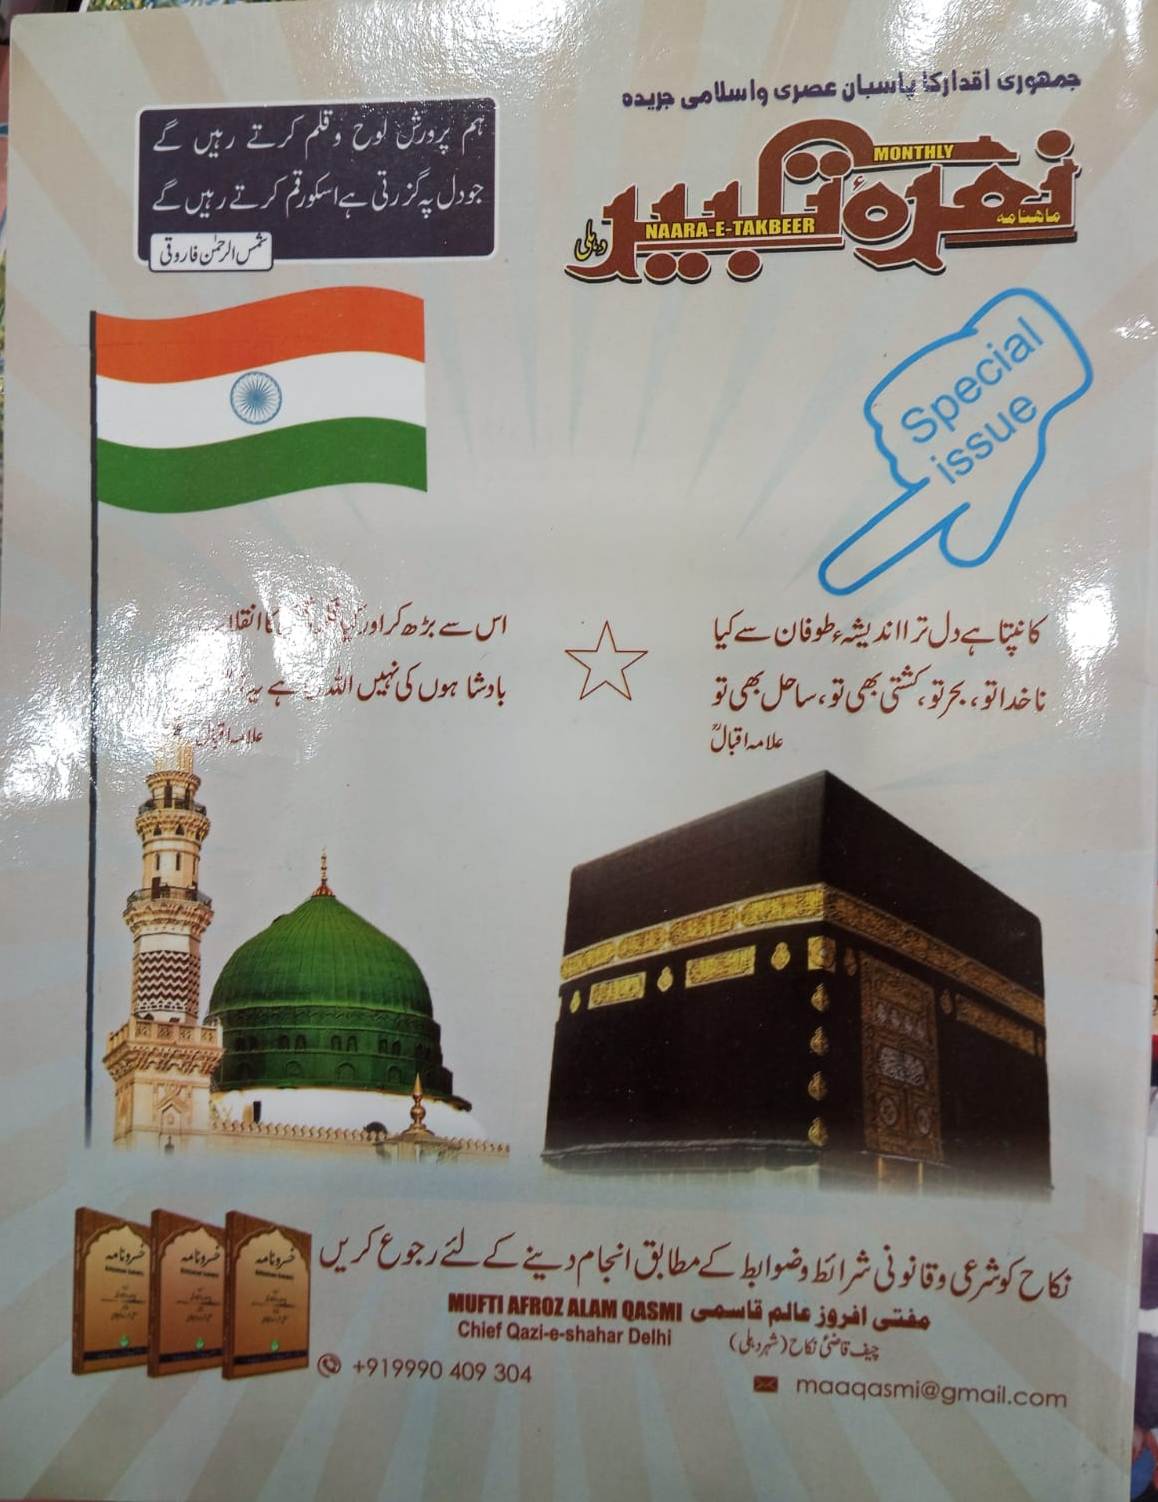 جمہوری اقدار کا پاسبان عصری و اسلامی جریدہ
نعرۂ تکبیر
MONTHLY
ماہنامہ
NAARA-E-TAKBEER
دہلی
ہم پرورش لوح و قلم کرتے رہیں گے
جو دل پہ گزرتی ہے اسکو رقم کرتے رہیں گے
شمس الرحمٰن فاروقی
Special
issue
کانپتا ہے دل ترا اندیشۂ طوفان سے کیا
ناخدا تو، بحر تو، کشتی بھی تو، ساحل بھی تو
علامہ اقبالؒ
اس سے بڑھ کر اور کیا کا انقلاب
بادشاہوں کی نہیں اللہ ہے یہ
علامہ اقبال
نکاح کو شرعی و قانونی شرائط و ضوابط کے مطابق انجام دینے کے لئے رجوع کریں
MUFTI AFROZ ALAM QASMI مفتی افروز عالم قاسمی
Chief Qazi-e-shahar Delhi چیف قاضئ نکاح (شہر دہلی)
+919990 409 304
maaqasmi@gmail.com
خسرو نامہ
خسرو نامہ
خسرو نامہ